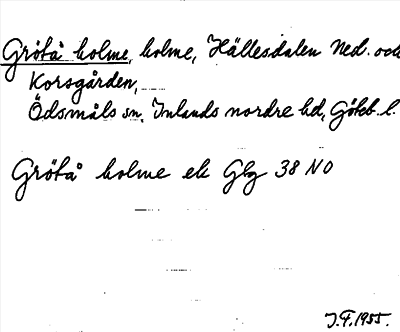 Grötå holme, holme, Hällesdalen Ned. och
Korsgården,
Ödsmåls sn, Inlands nordre hd, Göteb. l.
Grötå holme ek Glg 38 NO
J.F. 1955.